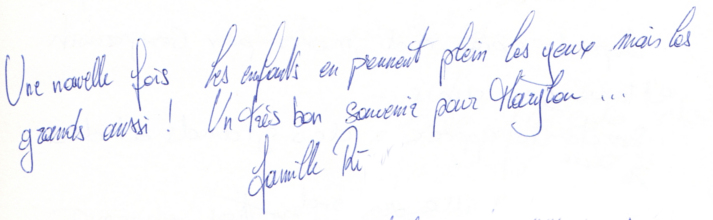 Une nouvelle fois les enfants en prennent plein les yeux mais les
grands aussi ! Un très bon souvenir pour Marylou ...
famille